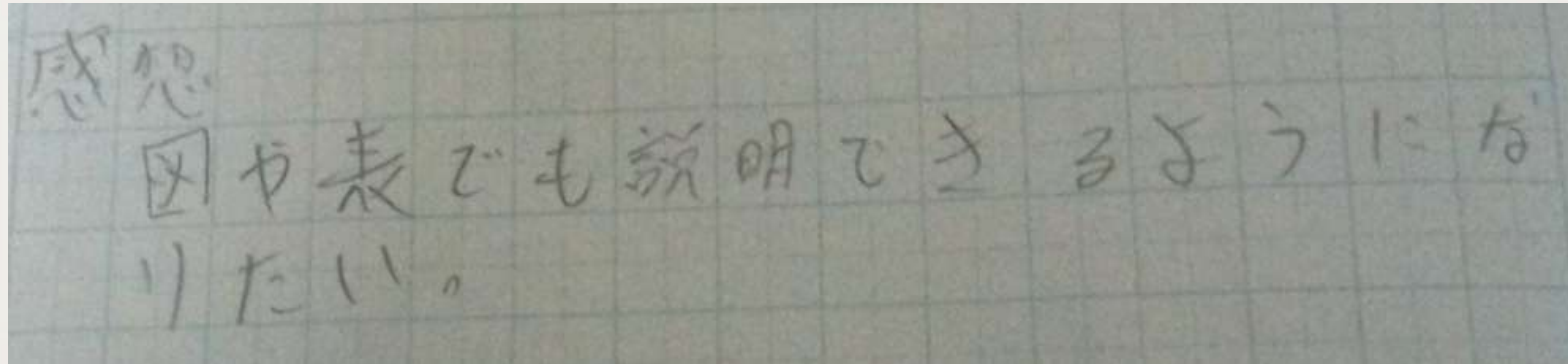 感想
図や表でも説明できるようにな
りたい。